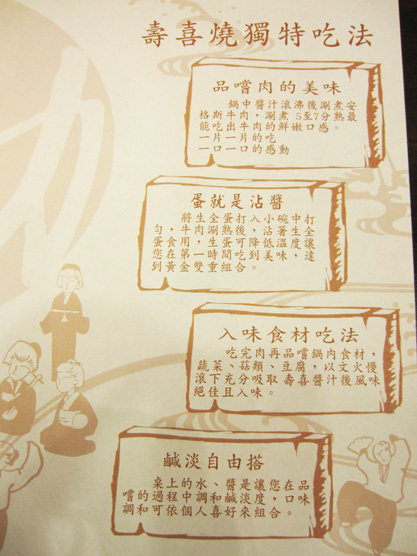 壽喜燒獨特吃法
品嚐肉的美味
鍋中醬汁滾沸後涮煮安
格斯牛肉，涮煮 5至7分熟最
能吃出牛肉的鮮嫩口感。
一片一片的吃
一口一口的感動
蛋就是沾醬
將生全蛋打入小碗中打
勻，牛肉涮熟後，沾著生全
蛋食用，生蛋可降低溫度讓
您在第一時間吃到美味，達
到黃金雙重組合。
入味食材吃法
吃完肉再品嚐鍋內食材，
蔬菜、菇類、豆腐，以文火慢
滾下充分吸取 壽喜醬汁後風味
絕佳且入味。
鹹淡自由搭
桌上的水、醬是讓您在品
嚐的過程中調和鹹淡度，口味
調和可依個人喜好來組合。